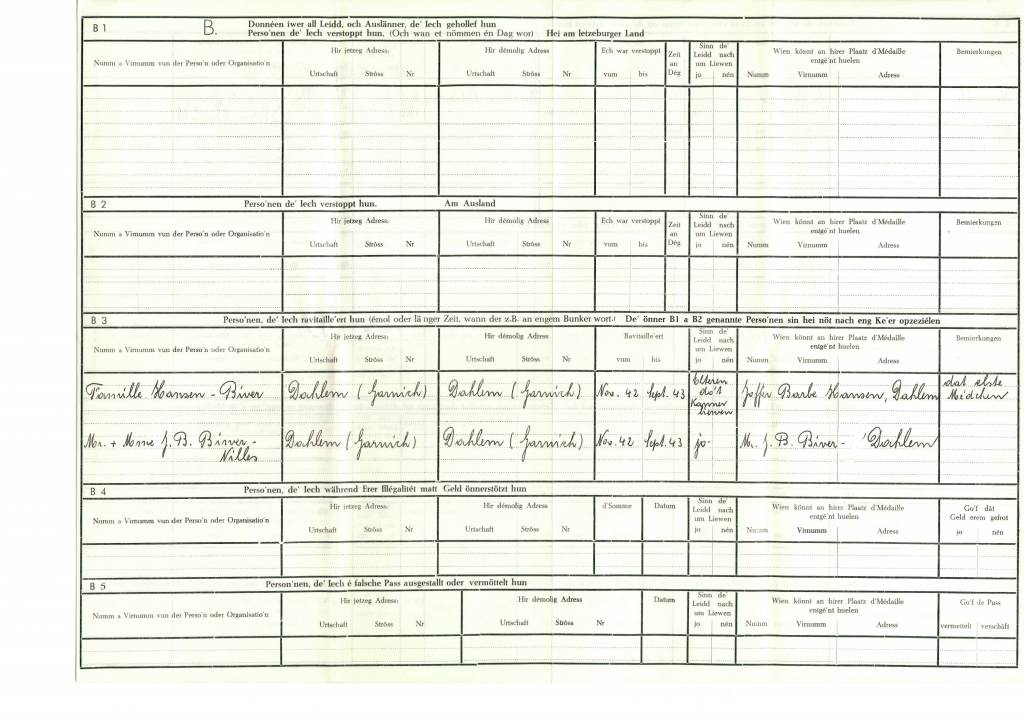 B 1 B. Donnéen iwer all Leidd, och Auslänner, de' Iech gehollef hun
Perso'nen de' Iech verstoppt hun. (Och wan et nömmen én Dag wor) Hei am letzeburger Land
Numm a Virnumm vun der Perso'n oder Organisatio'n
Hir jetzeg Adress:
Urtschaft Ströss Nr
Hir démolig Adress
Urtschaft Ströss Nr
Ech war verstoppt
vum bis
Zeit
an
Dég
Sinn de'
Leidd nach
um Liewen
jo nén
Wien könnt an hirer Plaatz d'Médaille
entgé'nt huelen
Numm Virnumm Adress
Bemierkungen
B 2 Perso'nen de' Iech verstoppt hun. Am Ausland
Numm a Virnumm vun der Perso'n oder Organisatio'n
Hir jetzeg Adress:
Urtschaft Ströss Nr
Hir démolig Adress
Urtschaft Ströss Nr
Ech war verstoppt
vum bis
Zeit
an
Dég
Sinn de'
Leidd nach
um Liewen
jo nén
Wien könnt an hirer Plaatz d'Médaille
entgé'nt huelen
Numm Virnumm Adress
Bemierkungen
B 3 Perso'nen, de' Iech ravitaille'ert hun (émol oder länger Zeit, wann der z.B. an engem Bunker wort.) De' önner B1 a B2 genannte Perso'nen sin hei nöt nach eng Ke'er opzeziélen
Numm a Virnumm vun der Perso'n oder Organisatio'n
Hir jetzeg Adress:
Urtschaft Ströss Nr
Hir démolig Adress
Urtschaft Ströss Nr
Ravitaille'ert
vum bis
Sinn de'
Leidd nach
um Liewen
jo nén
Wien könnt an hirer Plaatz d'Médaille
entgé'nt huelen
Numm Virnumm Adress
Bemierkungen
Famille Hansen - Biver Dahlem (Garnich) Dahlem (Garnich) Nov. 42 Sept. 43
Elteren
do't
Kanner
liewen
Joffer Barbe Hansen, Dahlem
dat elste
Médchen
Mr. + Mme J. B. Biver -
Nilles
Dahlem (Garnich) Dahlem (Garnich) Nov. 42 Sept. 43 jo- Mr. J. B. Biver - Dahlem
B 4 Perso'nen, de' Iech während Erer Illégalitét matt Geld önnerstötzt hun
Numm a Virnumm vun der Perso'n oder Organisatio'n
Hir jetzeg Adress:
Urtschaft Ströss Nr
Hir démolig Adress
Urtschaft Ströss Nr
d'Somme Datum
Sinn de'
Leidd nach
um Liewen
jo nén
Wien könnt an hirer Plaatz d'Médaille
entgé'nt huelen
Numm Virnumm Adress
Go'f dät
Geld erem gefrot
jo nén
B 5 Person'nen, de' Iech é falsche Pass ausgestallt oder vermöttelt hun
Numm a Virnumm vun der Perso'n oder Organisatio'n
Hir jetzeg Adress:
Urtschaft Ströss Nr
Hir démolig Adress
Urtschaft Ströss Nr
Datum
Sinn de'
Leidd nach
um Liewen
jo nén
Wien könnt an hirer Plaatz d'Médaille
entgé'nt huelen
Numm Virnumm Adress
Go'f de Pass
vermettelt verschâft